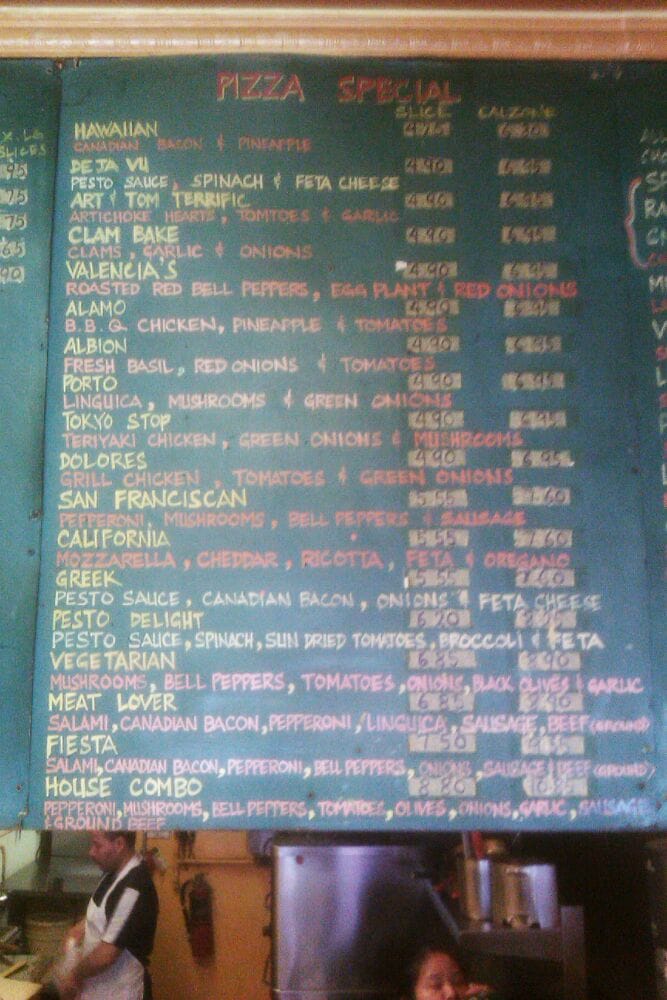 PIZZA SPECIAL
SLICE CALZONE
X. LG
SLICES
HAWAIIAN
CANADIAN BACON & PINEAPPLE
DEJA VU 4.90 6.95
PESTO SAUCE, SPINACH & FETA CHEESE
ART & TOM TERRIFIC 4.90 6.95
ARTICHOKE HEARTS, TOMTOES & GARLIC
CLAM BAKE 4.90 6.95
CLAMS, GARLIC & ONIONS
VALENCIA'S 4.90 6.95
ROASTED RED BELL PEPPERS, EGG PLANT & RED ONIONS
ALAMO 4.90 6.95
B.B.Q. CHICKEN, PINEAPPLE & TOMATOES
ALBION 4.90 6.95
FRESH BASIL, RED ONIONS & TOMATOES
PORTO 4.90 6.95
LINGUICA, MUSHROOMS & GREEN ONIONS
TOKYO STOP 4.90 6.95
TERIYAKI CHICKEN, GREEN ONIONS & MUSHROOMS
DOLORES 4.90 6.95
GRILL CHICKEN, TOMATOES & GREEN ONIONS
SAN FRANCISCAN 5.55 7.60
PEPPERONI, MUSHROOMS, BELL PEPPERS & SAUSAGE
CALIFORNIA 5.55 7.60
MOZZARELLA, CHEDDAR, RICOTTA, FETA & OREGANO
GREEK 5.55 7.60
PESTO SAUCE, CANADIAN BACON, ONIONS & FETA CHEESE
PESTO DELIGHT 6.20
PESTO SAUCE, SPINACH, SUN DRIED TOMATOES, BROCCOLI & FETA
VEGETARIAN 6.85
MUSHROOMS, BELL PEPPERS, TOMATOES, ONIONS, BLACK OLIVES & GARLIC
MEAT LOVER 6.85
SALAMI, CANADIAN BACON, PEPPERONI, LINGUICA, SAUSAGE, BEEF (GROUND)
FIESTA 7.50
SALAMI, CANADIAN BACON, PEPPERONI, BELL PEPPERS, ONIONS, SAUSAGE & BEEF (GROUND)
HOUSE COMBO 8.80
PEPPERONI, MUSHROOMS, BELL PEPPERS, TOMATOES, OLIVES, ONIONS, GARLIC, SAUSAGE
& GROUND BEEF